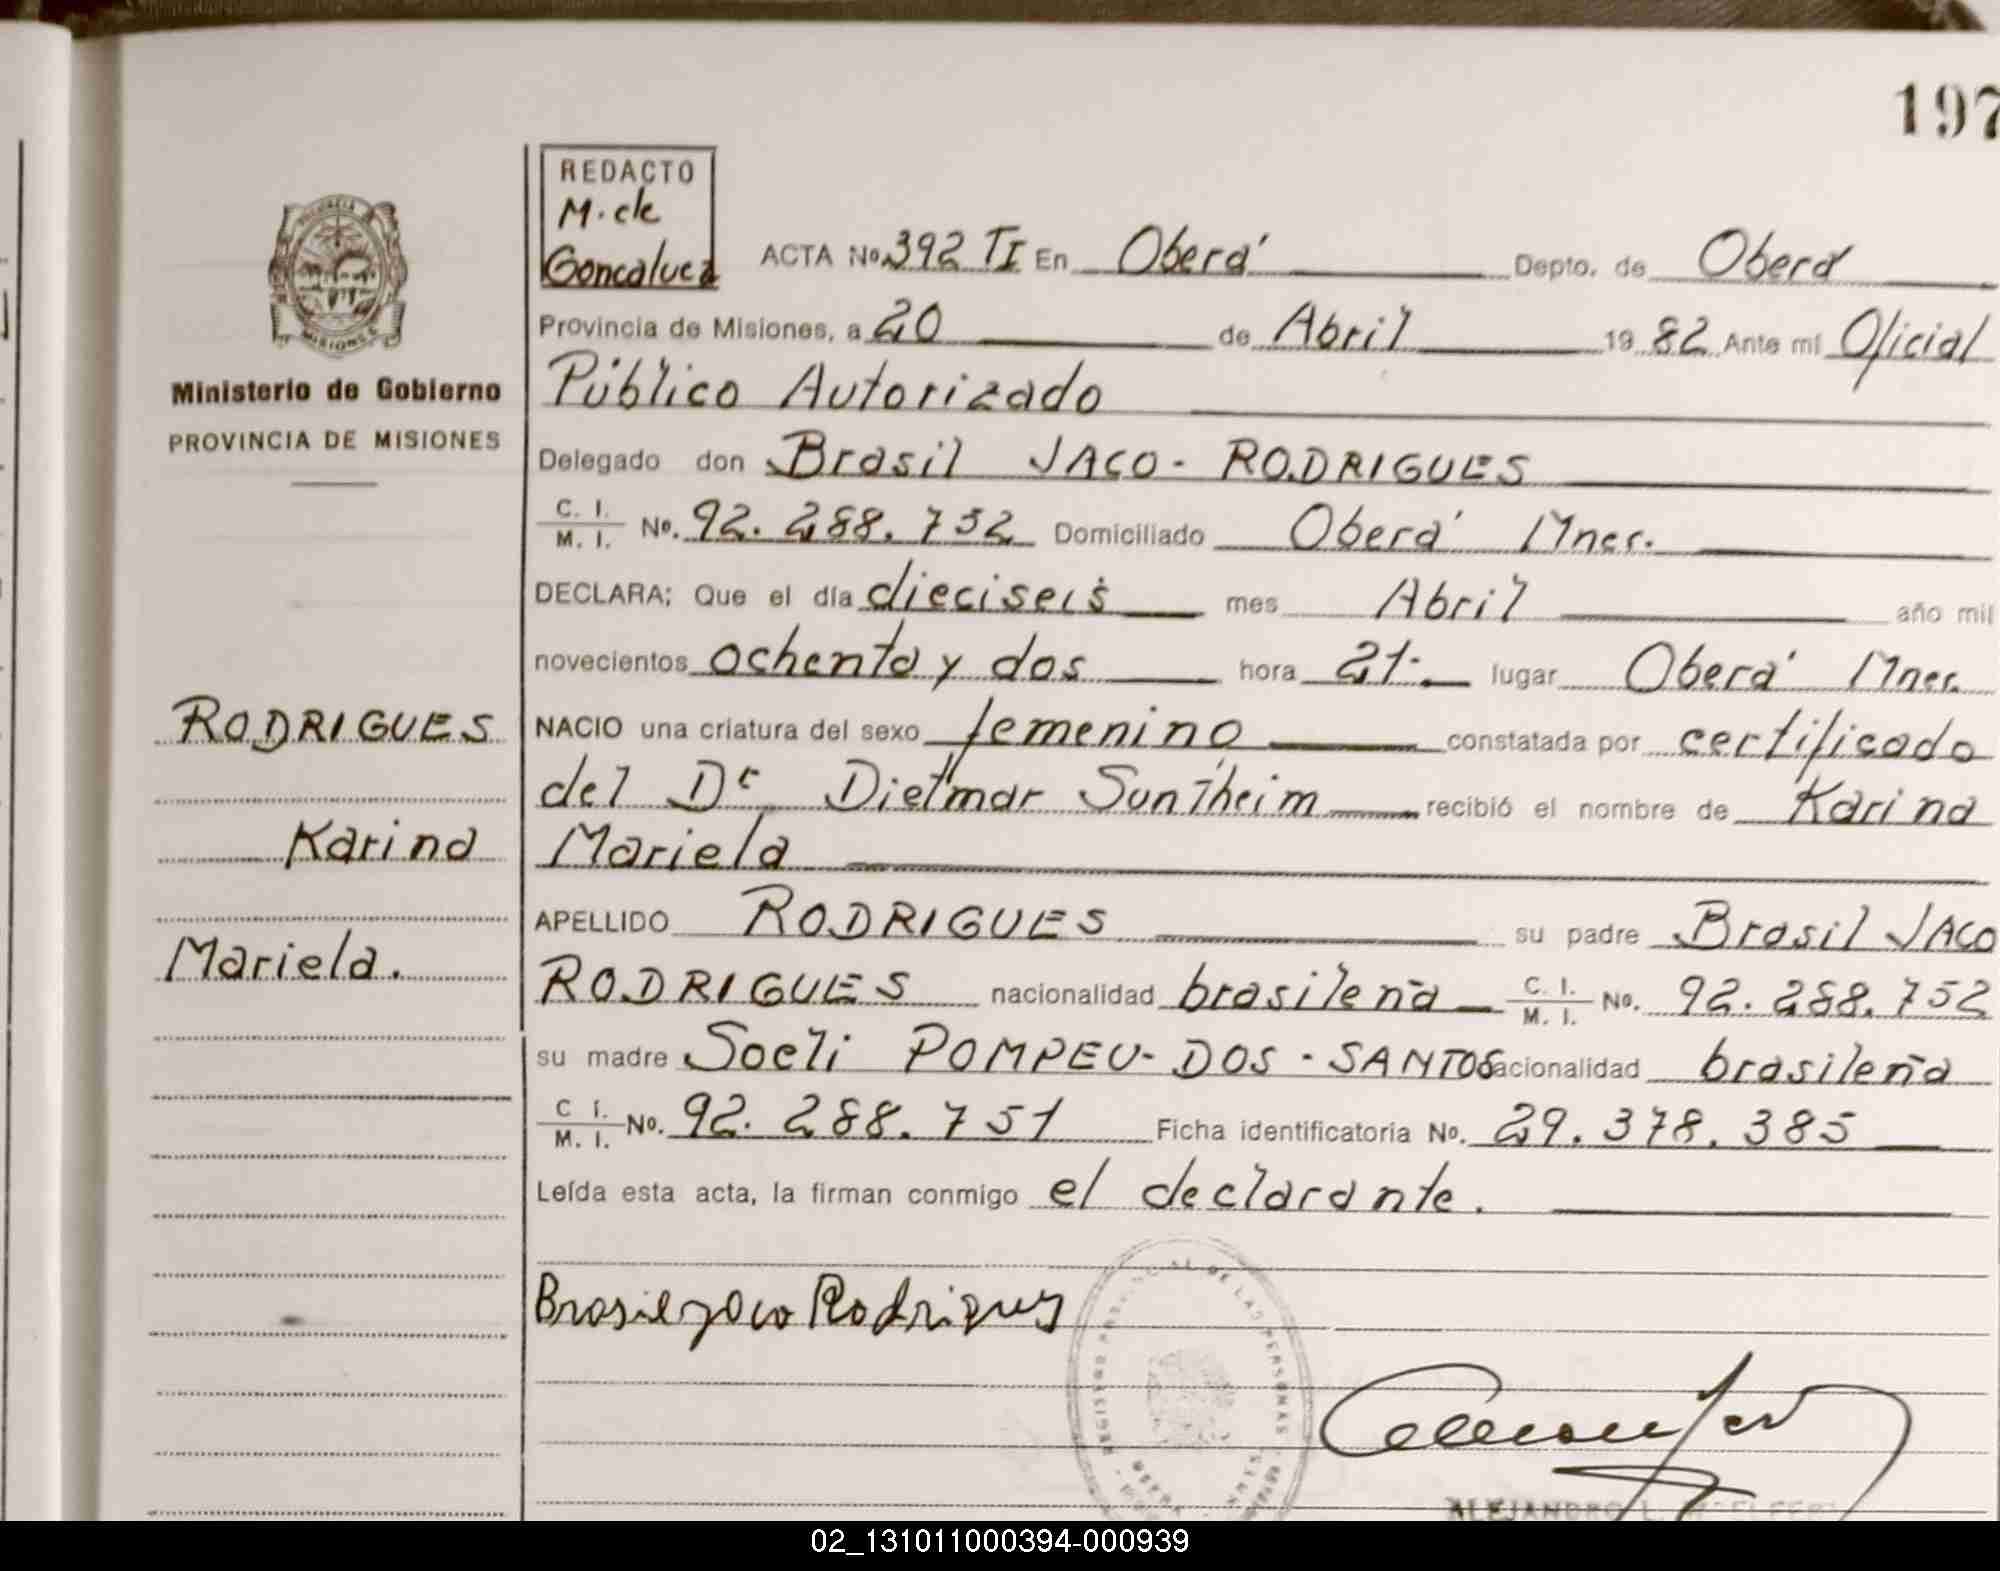 197
REDACTO
M. de
Goncalvez
ACTA No. 392 TI En Oberá Depto. de Oberá
Provincia de Misiones, a 20 de Abril 19 82 Ante mí Oficial
Público Autorizado
Ministerio de Gobierno
PROVINCIA DE MISIONES
Delegado don Brasil JACO - RODRIGUES
C. I. M. I. No. 92.288.752 Domiciliado Oberá Mnes.
DECLARA; Que el día dieciseis mes Abril año mil
novecientos ochenta y dos hora 21. lugar Oberá Mnes.
RODRIGUES
Karina
Mariela.
NACIO una criatura del sexo femenino constatada por certificado
del Dr Dietmar Suntheim recibió el nombre de Karina
Mariela
APELLIDO RODRIGUES su padre Brasil JACO
RODRIGUES nacionalidad brasileña C. I. M. I. No. 92.288.752
su madre Soeli POMPEU - DOS - SANTOS nacionalidad brasileña
C I. M. I. No. 92.288.751 Ficha identificatoria No. 29.378.385
Leída esta acta, la firman conmigo el declarante.
Brasil Jaco Rodrigues
REGISTRO PROVINCIAL DE LAS PERSONAS
ALEJANDRO L.
02_131011000394-000939